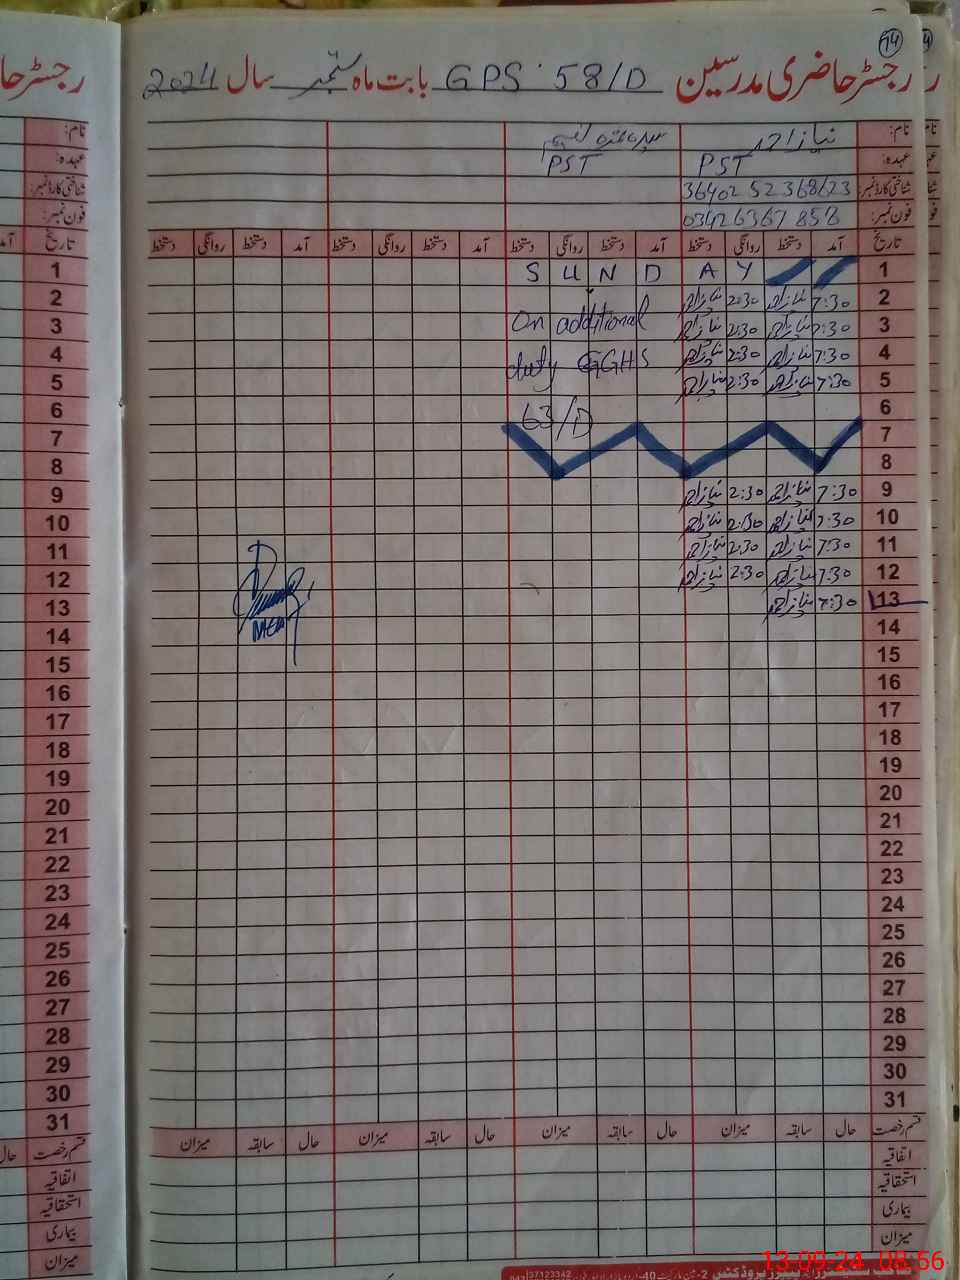 74
رجسٹر حاضری مدرسین GPS 58/D بابت ماہ ستمبر سال 2024
نام: نیاز احمد
عہدہ: PST PST
شناختی کارڈ نمبر: 36402 52 368623
فون نمبر: 0342 6367 858
تاریخ آمد دستخط روانگی دستخط آمد دستخط روانگی دستخط آمد دستخط روانگی دستخط آمد دستخط روانگی دستخط
1 S U N D A Y
2 7:30 نیاز احمد 2:30 نیاز احمد
On additional
3 7:30 نیاز احمد 2:30 نیاز احمد
4 7:30 نیاز احمد 2:30 نیاز احمد
duty GGHS
5 7:30 نیاز احمد 2:30 نیاز احمد
6
63/D
7
8
9 7:30 نیاز احمد 2:30 نیاز احمد
10 7:30 نیاز احمد 2:30 نیاز احمد
11 7:30 نیاز احمد 2:30 نیاز احمد
12 7:30 نیاز احمد 2:30 نیاز احمد
13 7:30 نیاز احمد
14
15
16
17
18
19
20
21
22
23
24
25
26
27
28
29
30
31
قسم رخصت حال سابقہ میزان حال سابقہ میزان حال سابقہ میزان حال سابقہ میزان
اتفاقیہ
استحقاقیہ
بیماری
میزان
رجسٹر حا
نام:
عہدہ:
شناختی کارڈ نمبر:
فون نمبر:
تاریخ آمد
1
2
3
4
5
6
7
8
9
10
11
12
13
14
15
16
17
18
19
20
21
22
23
24
25
26
27
28
29
30
31
قسم رخصت حال
اتفاقیہ
استحقاقیہ
بیماری
میزان
37123342
13-09-24 08:56